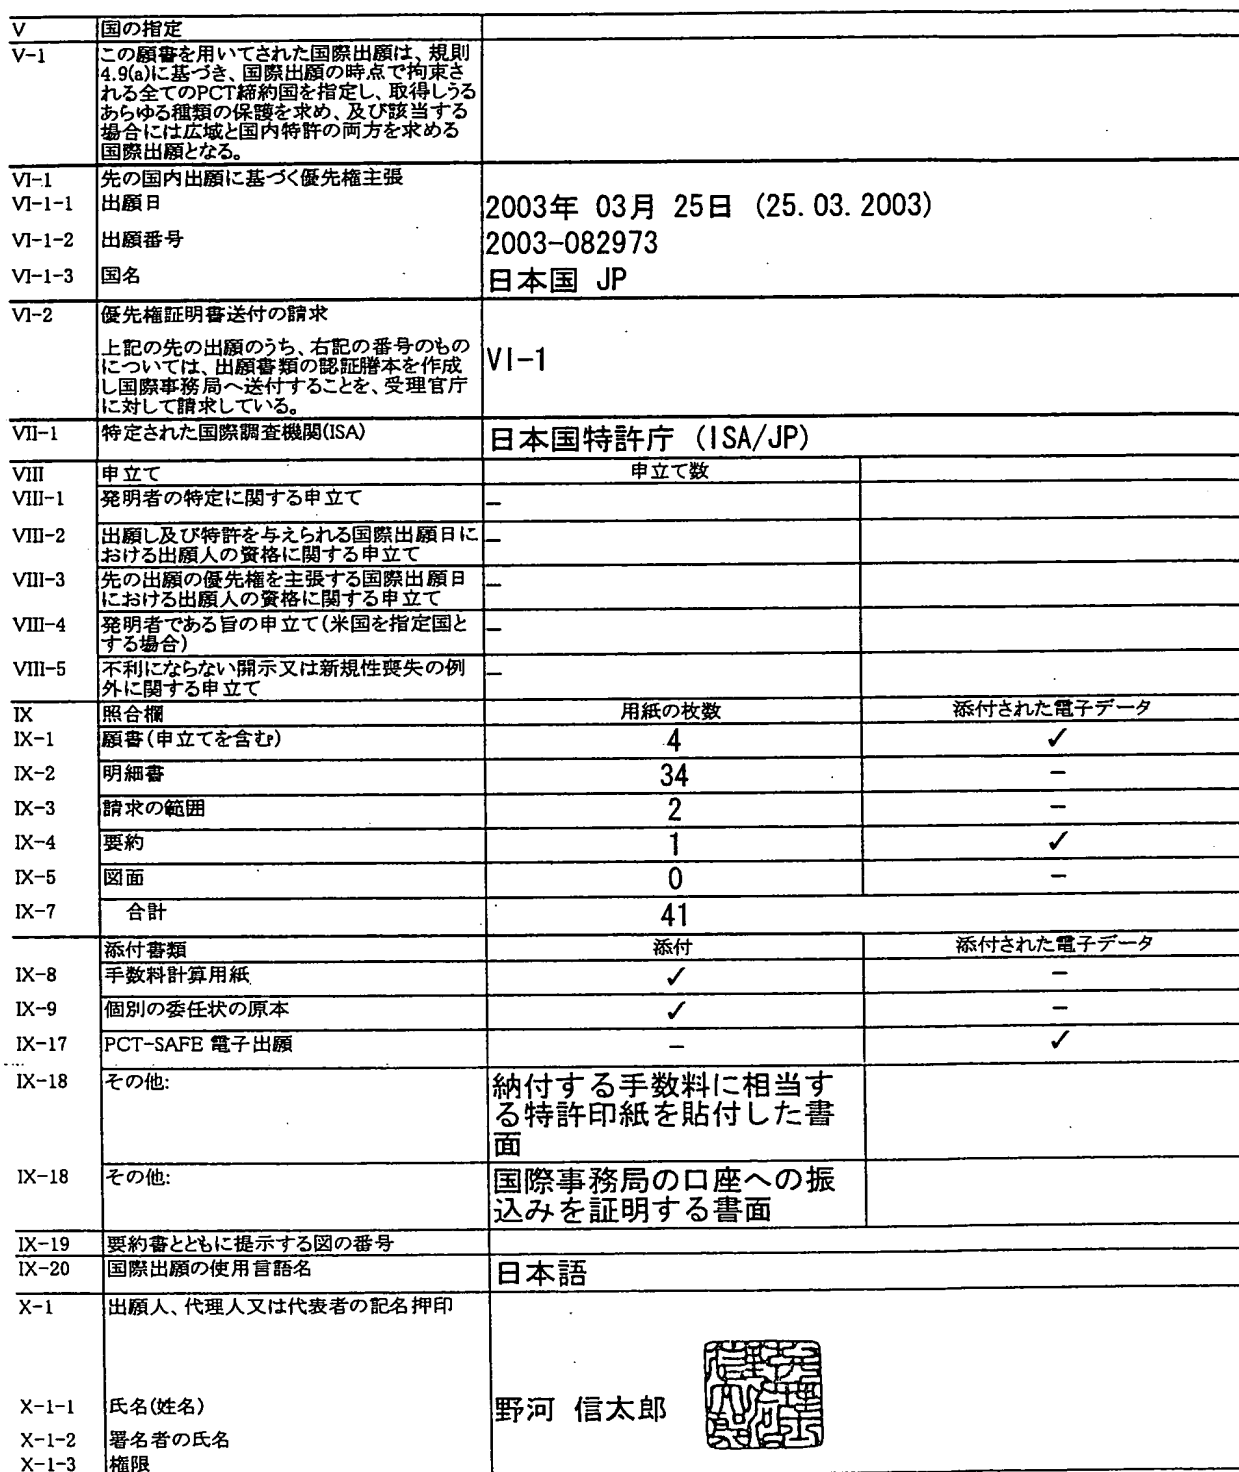 V 国の指定
V-1 この願書を用いてされた国際出願は、規則
4.9(a)に基づき、国際出願の時点で拘束さ
れる全てのPCT締約国を指定し、取得しうる
あらゆる種類の保護を求め、及び該当する
場合には広域と国内特許の両方を求める
国際出願となる。
VI-1 先の国内出願に基づく優先権主張
VI-1-1 出願日 2003年 03月 25日 (25.03.2003)
VI-1-2 出願番号 2003-082973
VI-1-3 国名 日本国 JP
VI-2 優先権証明書送付の請求
上記の先の出願のうち、右記の番号のもの
については、出願書類の認証謄本を作成
し国際事務局へ送付することを、受理官庁
に対して請求している。
VI-1
VII-1 特定された国際調査機関(ISA) 日本国特許庁 (ISA/JP)
VIII 申立て 申立て数
VIII-1 発明者の特定に関する申立て –
VIII-2 出願し及び特許を与えられる国際出願日に –
おける出願人の資格に関する申立て
VIII-3 先の出願の優先権を主張する国際出願日 –
における出願人の資格に関する申立て
VIII-4 発明者である旨の申立て(米国を指定国と –
する場合)
VIII-5 不利にならない開示又は新規性喪失の例 –
外に関する申立て
IX 照合欄 用紙の枚数 添付された電子データ
IX-1 願書(申立てを含む) 4 ✓
IX-2 明細書 34 –
IX-3 請求の範囲 2 –
IX-4 要約 1 ✓
IX-5 図面 0 –
IX-7 合計 41
添付書類 添付 添付された電子データ
IX-8 手数料計算用紙 ✓ –
IX-9 個別の委任状の原本 ✓ –
IX-17 PCT-SAFE 電子出願 – ✓
IX-18 その他: 納付する手数料に相当す
る特許印紙を貼付した書
面
IX-18 その他: 国際事務局の口座への振
込みを証明する書面
IX-19 要約書とともに提示する図の番号
IX-20 国際出願の使用言語名 日本語
X-1 出願人、代理人又は代表者の記名押印
X-1-1 氏名(姓名) 野河 信太郎
X-1-2 署名者の氏名
X-1-3 権限